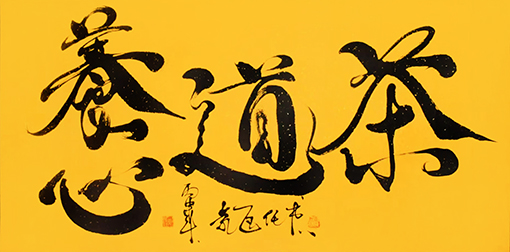 茶道養心